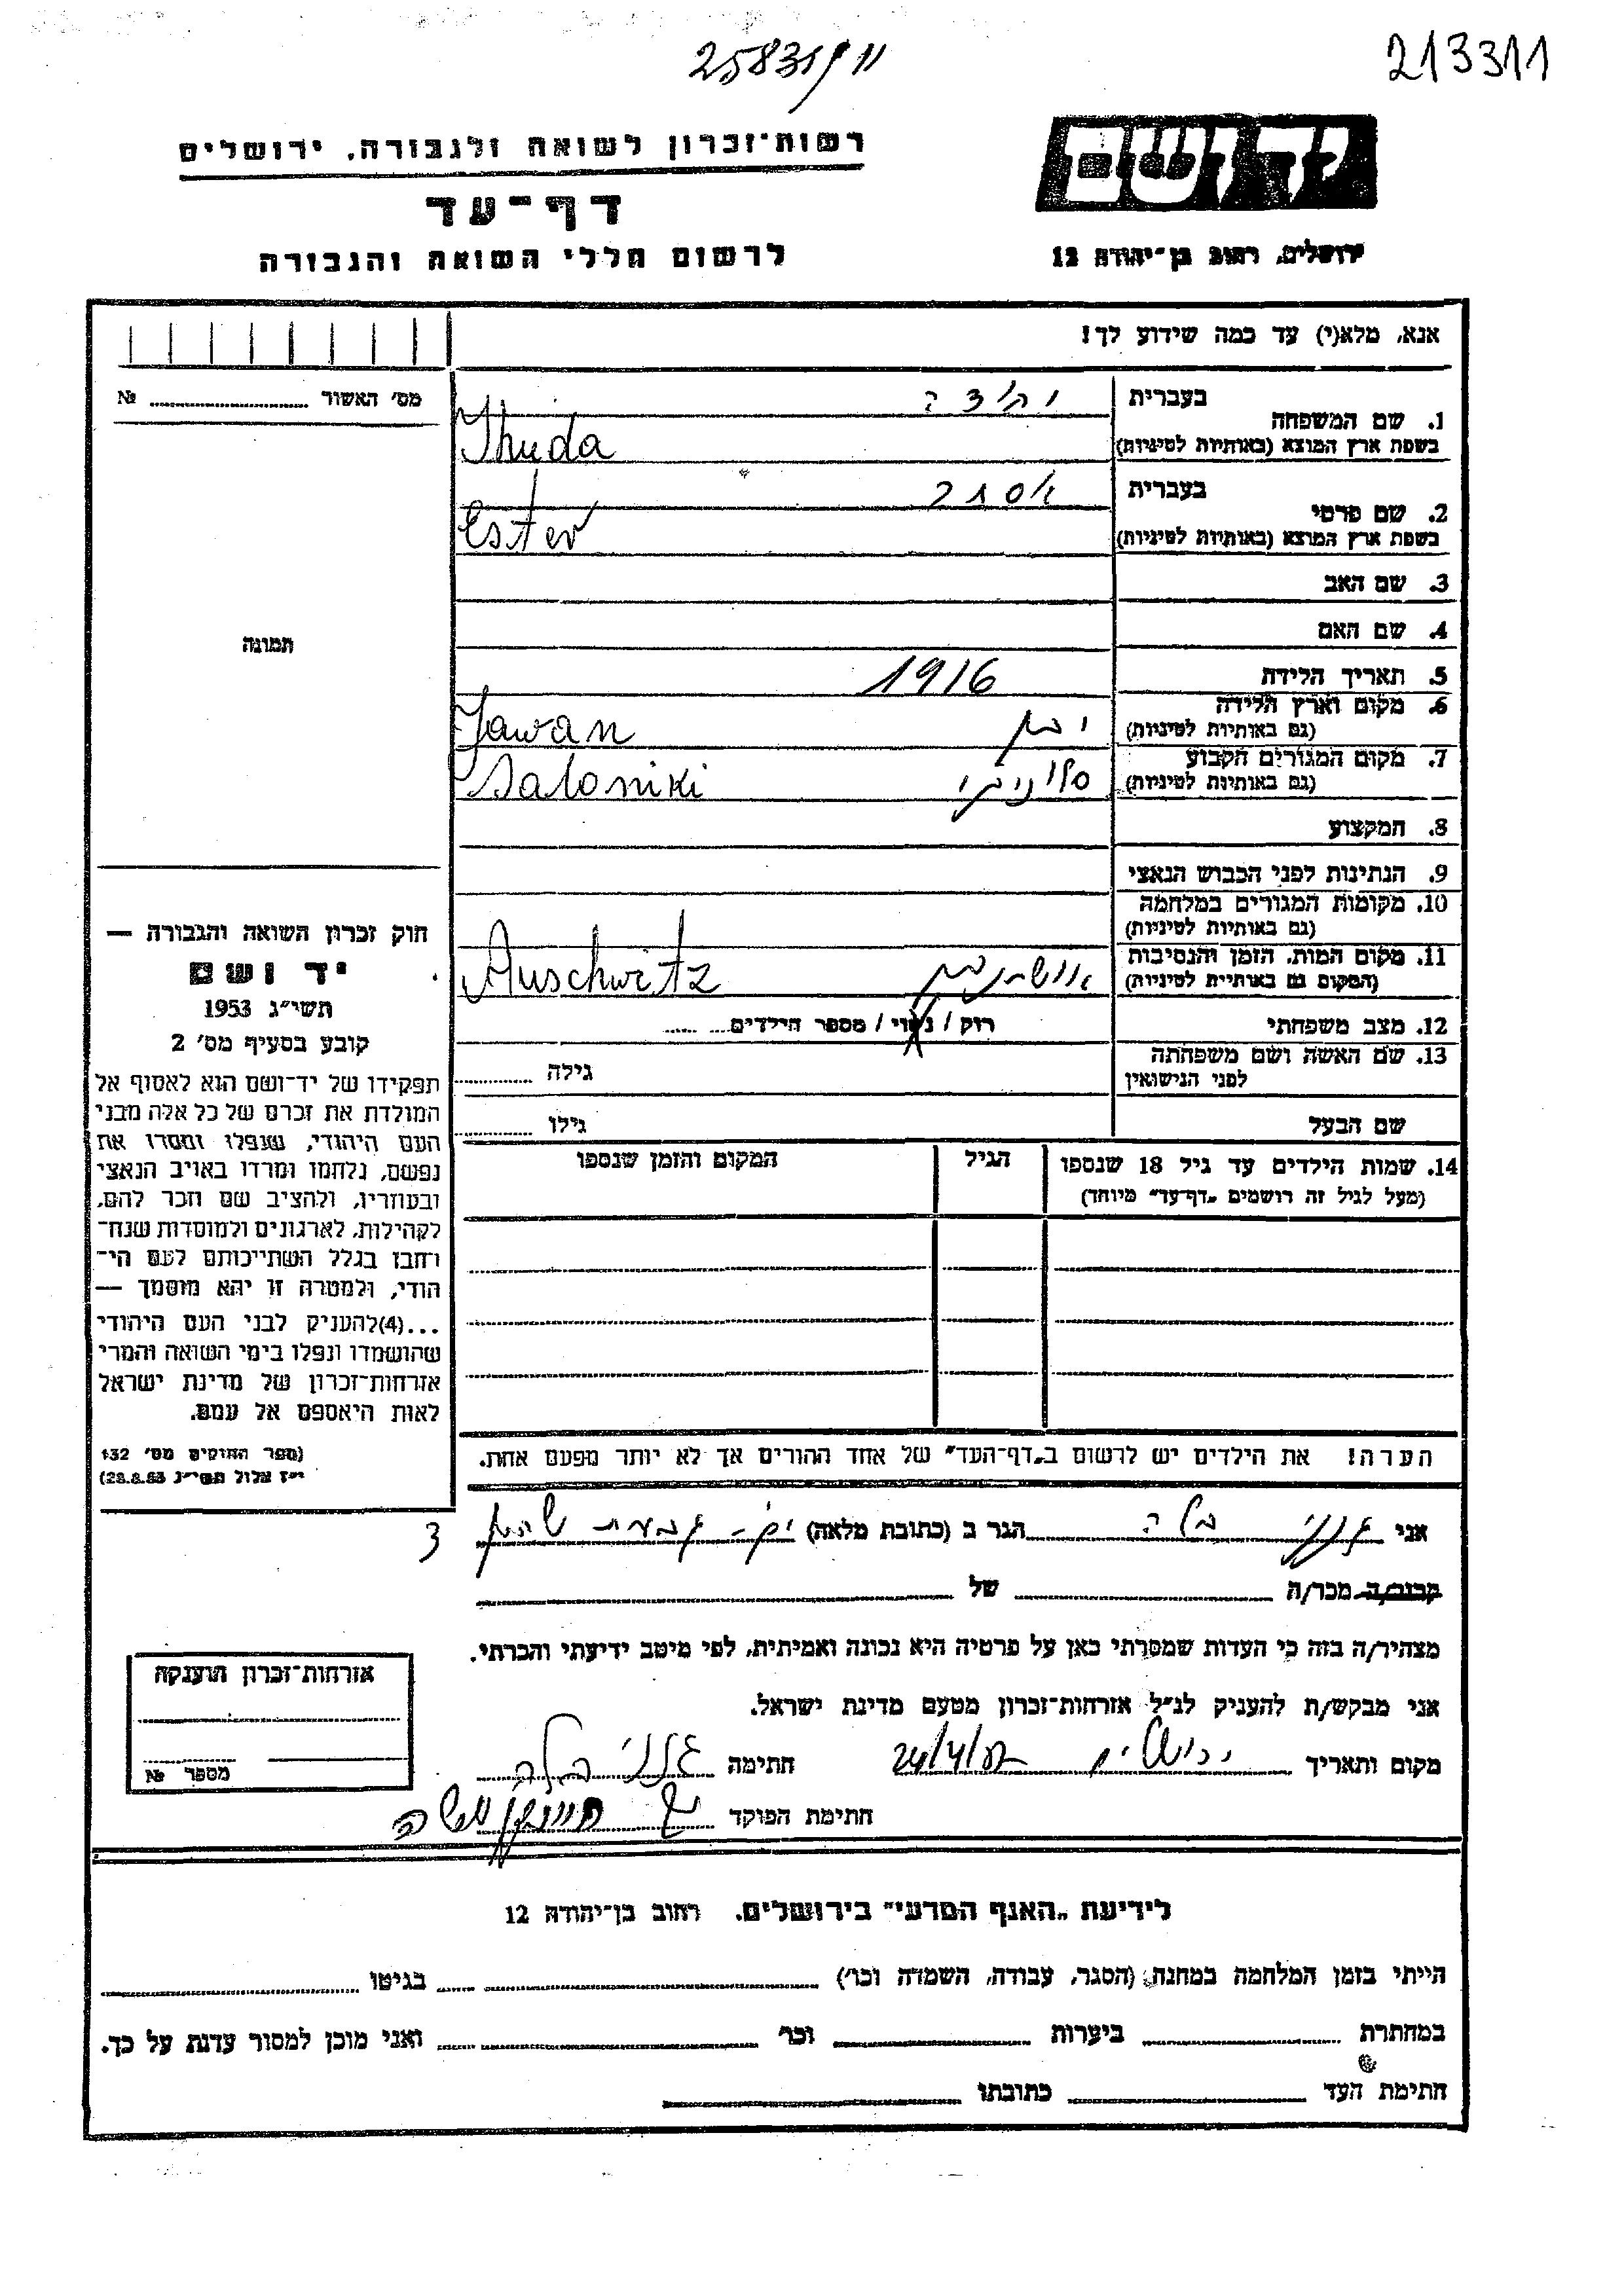 25831/11
213311
יד ושם
רשות־זכרון לשואה ולגבורה, ירושלים
דף־עד
לרשום חללי השואה והגבורה
ירושלים, רחוב בן־יהודה 12
אנא, מלא(י) עד כמה שידוע לך!
מס' האשור № 
תמונה
1. שם המשפחה
בעברית
בשפת ארץ המוצא (באותיות לטיניות) Jhuda
2. שם פרטי
בעברית אסתר
בשפת ארץ המוצא (באותיות לטיניות) Ester
3. שם האב
4. שם האם
5. תאריך הלידה 1916
6. מקום וארץ הלידה
(גם באותיות לטיניות) יון Jawan
7. מקום המגורים הקבוע
(גם באותיות לטיניות) סלוניקי Saloniki
8. המקצוע
9. הנתינות לפני הכבוש הנאצי
10. מקומות המגורים במלחמה
(גם באותיות לטיניות)
11. מקום המות, הזמן והנסיבות
(המקום גם באותיות לטיניות) Auschwitz
12. מצב משפחתי רוק / נשוי / מספר הילדים
13. שם האשה ושם משפחתה
לפני הנישואין גילה
שם הבעל גילו
14. שמות הילדים עד גיל 18 שנספו
(מעל לגיל זה רושמים „דף־עד" מיוחד)
הגיל
המקום והזמן שנספו
הערה! את הילדים יש לרשום ב„דף־העד" של אחד ההורים אך לא יותר מפעם אחת.
חוק זכרון השואה והגבורה —
יד ושם
תשי"ג 1953
קובע בסעיף מס' 2
תפקידו של יד־ושם הוא לאסוף אל
המולדת את זכרם של כל אלה מבני
העם היהודי, שנפלו ומסרו את
נפשם, נלחמו ומרדו באויב הנאצי
ובעוזריו, ולהציב שם וזכר להם,
לקהילות, לארגונים ולמוסדות שנח־
רחבו בגלל השתייכותם לעם הי־
הודי, ולמטרה זו יהא מוסמך —
...(4)להעניק לבני העם היהודי
שהושמדו ונפלו בימי השואה והמרי
אזרחות־זכרון של מדינת ישראל
לאות היאספם אל עמם.
(ספר החוקים מס' 132
י"ז אלול תשי"ג 28.8.53)
אני הגר ב (כתובת מלאה) 3
קרוב/ה מכר/ה של
מצהיר/ה בזה כי העדות שמסרתי כאן על פרטיה היא נכונה ואמיתית, לפי מיטב ידיעתי והכרתי.
אני מבקש/ת להעניק לנ"ל אזרחות־זכרון מטעם מדינת ישראל.
מקום ותאריך ירושלים חתימה
חתימת הפוקד
אזרחות־זכרון הוענקה
מספר №
לידיעת „האגף המדעי" בירושלים. רחוב בן־יהודה 12
הייתי בזמן המלחמה במחנה (הסגר, עבודה, השמדה וכר') בגיטו
במחתרת ביערות וכר' ואני מוכן למסור עדות על כך.
חתימת העד כתובתו